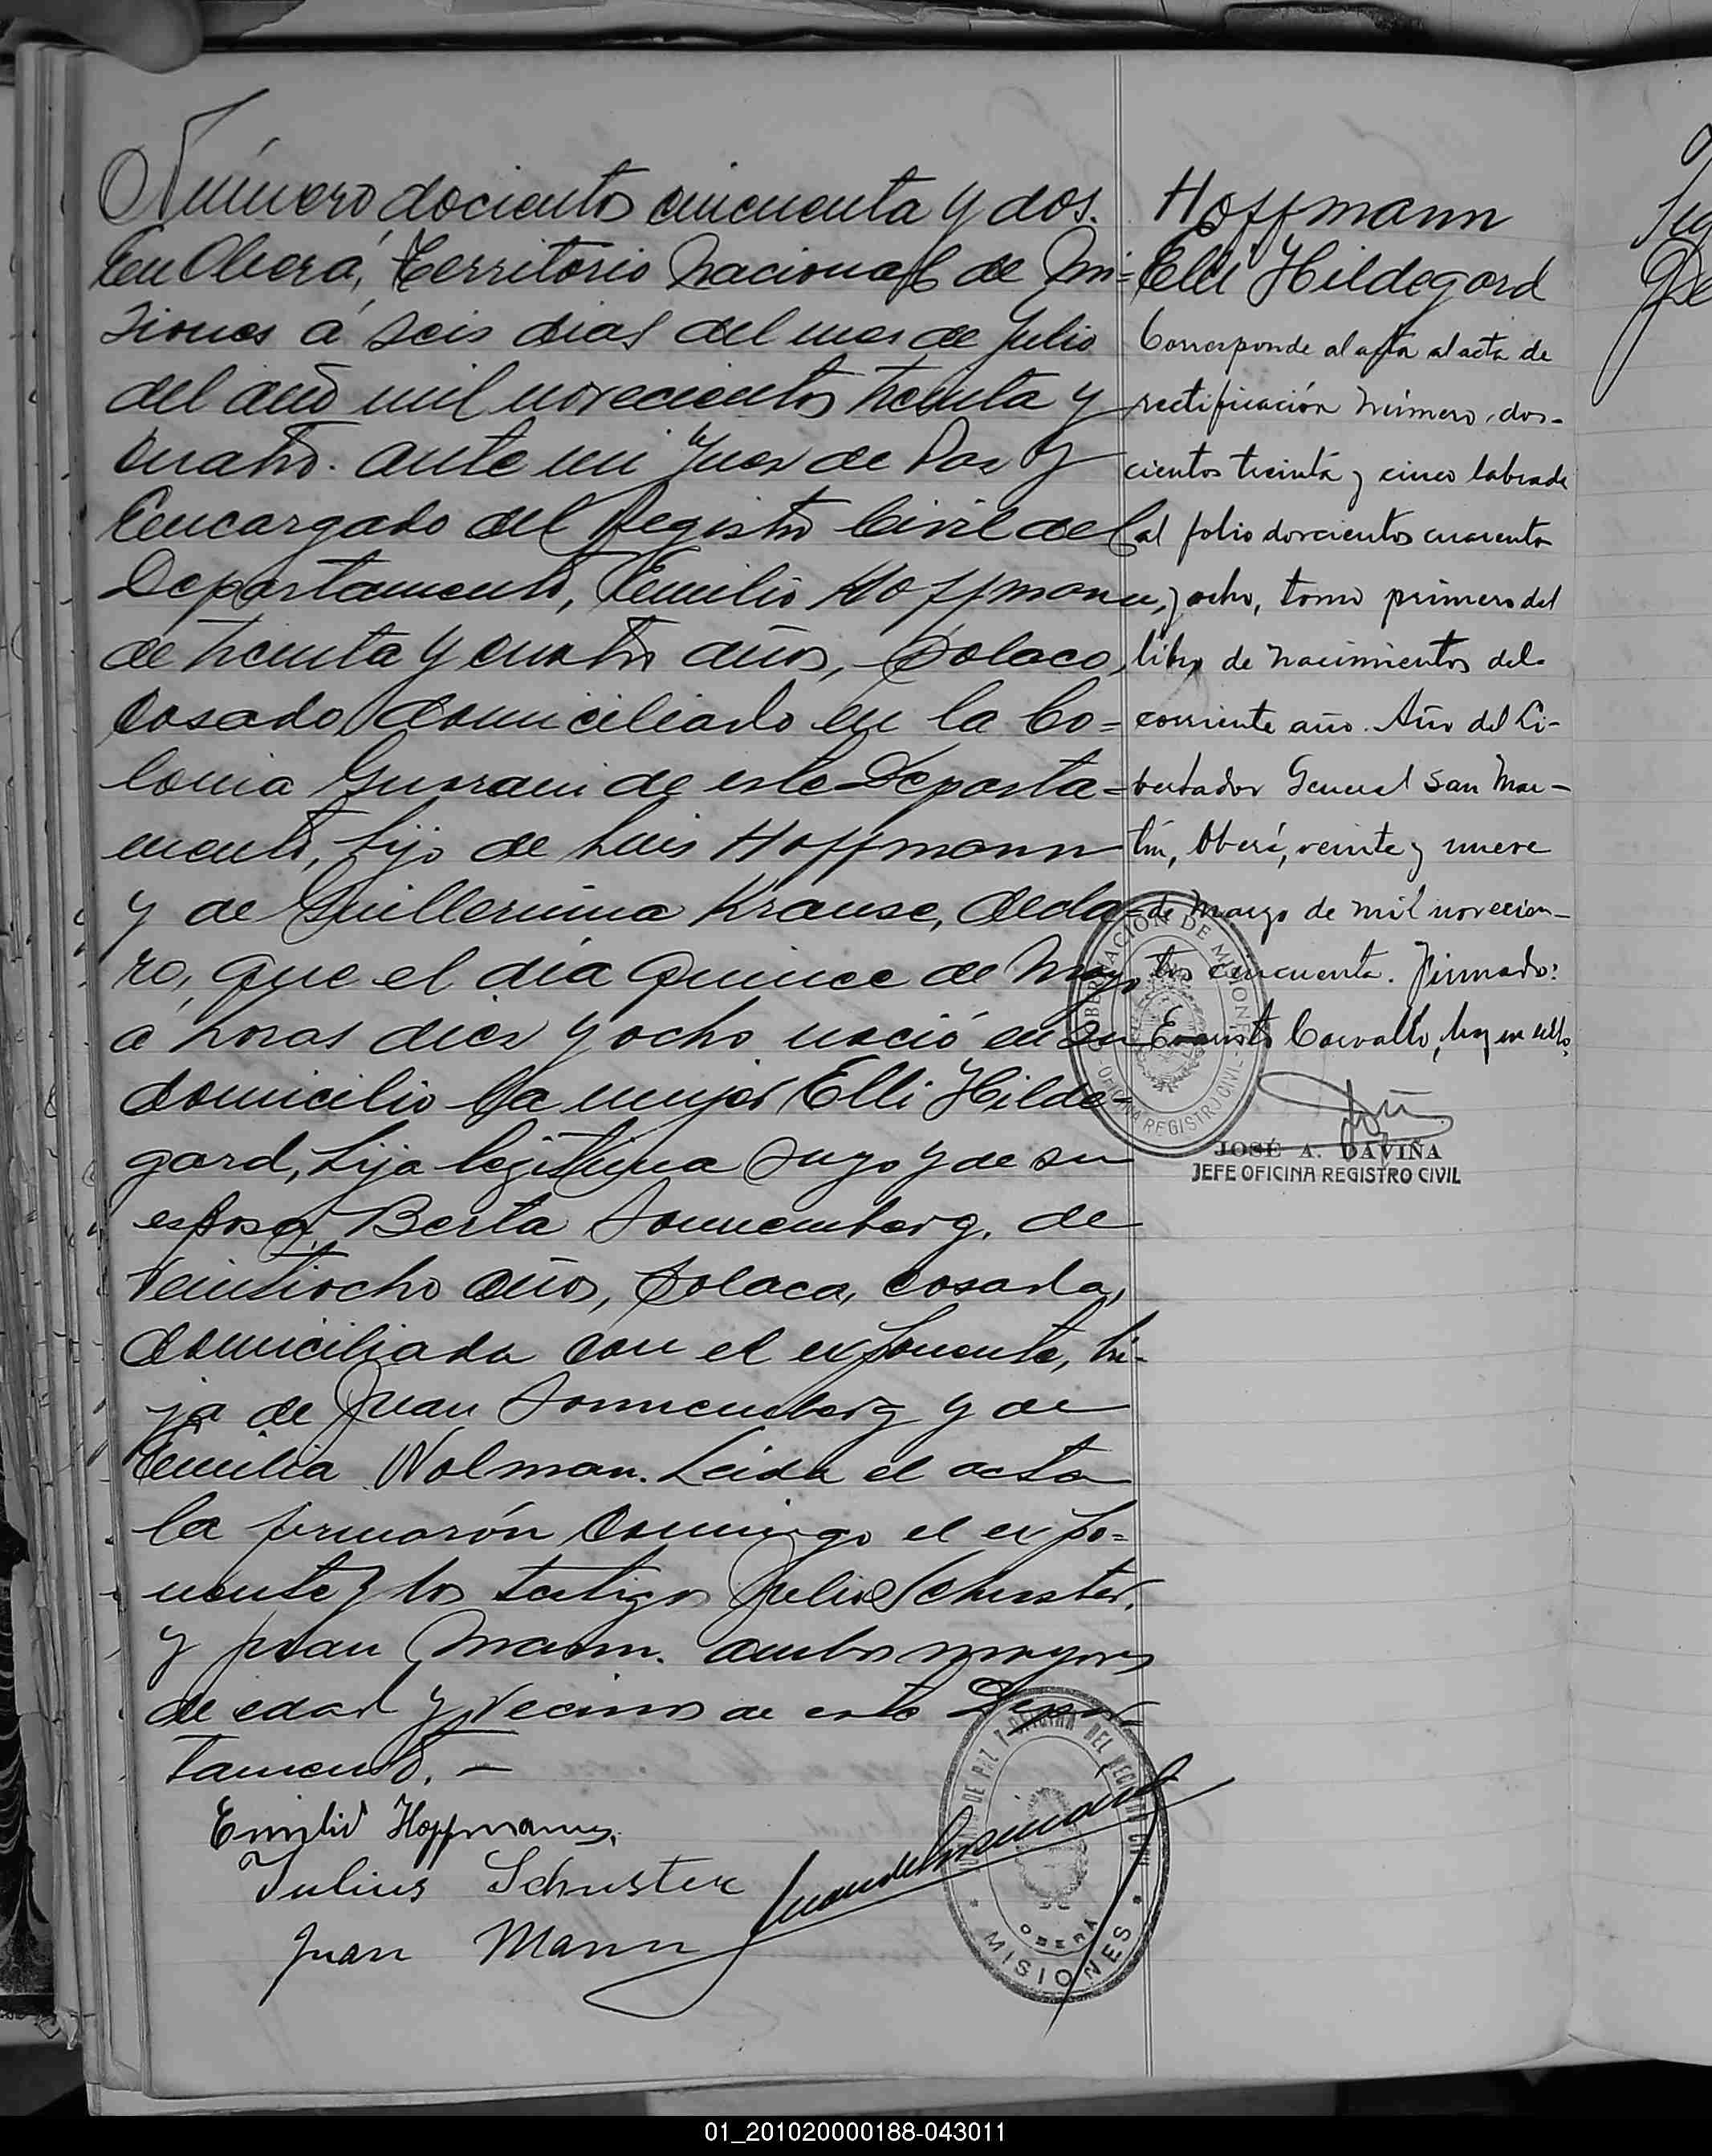 Número docientos cincuenta y dos.
En Oberá, Territorio Nacional de Mi=
siones á seis dias del mes de Julio
del año mil novecientos treinta y
cuatro. ante mi Juez de Paz y
Encargado del Registro Civil del
Departamento, Emilio Hoffmann,
de treinta y cuatro años, polaco,
casado domiciliado en la Co=
lonia Guarani de este Departa=
mento, hijo de Luis Hoffmann
y de Guillermina Krause, decla=
ro, que el día quince de Mayo
á horas diez y ocho nació en su
domicilio la mujer Elli Hilde=
gard, hija legitima suya y de su
esposa Berta Sonnemberg, de
veintiocho años, polaca, casada,
domiciliada con el exponente, hi-
ja de Juan Sonnemberg y de
Emilia Wolman. Leida el acta
la firmarón conmigo el expo=
nente y los testigos Julio Schuster,
y Juan Mann. ambos mayores
de edad y vecinos de este Depar
tamento. —
Emilio Hoffmann
Julius Schuster
Juan Mann
Hoffmann
Elli Hildegard
Corresponde al acta de
rectificación número dos-
cientos treinta y cinco labrada
al folio doscientos cuarenta
y ocho, tomo primero del
libro de nacimientos del
corriente año. Año del Li-
bertador General San Mar-
tín, Oberá, veinte y nueve
de marzo de mil novecien-
tos cincuenta. Firmado:
Evaristo Carvallo, hay un sello.
GOBERNACIÓN DE MISIONES
OFICINA REGISTRO CIVIL
JOSÉ A. DAVIÑA
JEFE OFICINA REGISTRO CIVIL
JUZGADO DE PAZ Y OFICINA DEL REGISTRO CIVIL
OBERÁ
MISIONES
01_201020000188-043011